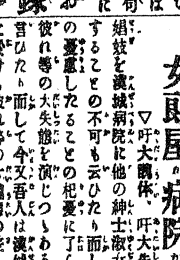 女郞屋か病院
▽吁大醜体、吁大失
娼妓を漢城病院に他の紳士淑
することの不可も云ひたり而し
の憂慮したることの杞憂に了
彼れ等の大失態を演じつゝある
言ひたり而して今又吾人は漢